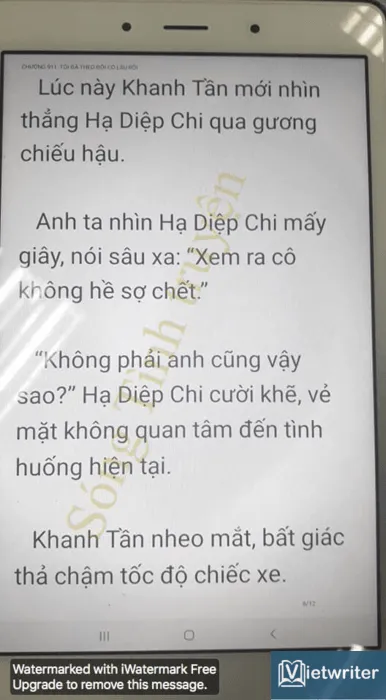 CHƯƠNG 911: TÔI ĐÃ THEO DÕI CÔ LÂU RỒI
Lúc này Khanh Tần mới nhìn
thẳng Hạ Diệp Chi qua gương
chiếu hậu.
Anh ta nhìn Hạ Diệp Chi mấy
giây, nói sâu xa: “Xem ra cô
không hề sợ chết.”
“Không phải anh cũng vậy
sao?” Hạ Diệp Chi cười khẽ, vẻ
mặt không quan tâm đến tình
huống hiện tại.
Khanh Tần nheo mắt, bất giác
thả chậm tốc độ chiếc xe.
Sóng Tình truyện
Watermarked with iWatermark Free
Upgrade to remove this message.
Vietwriter